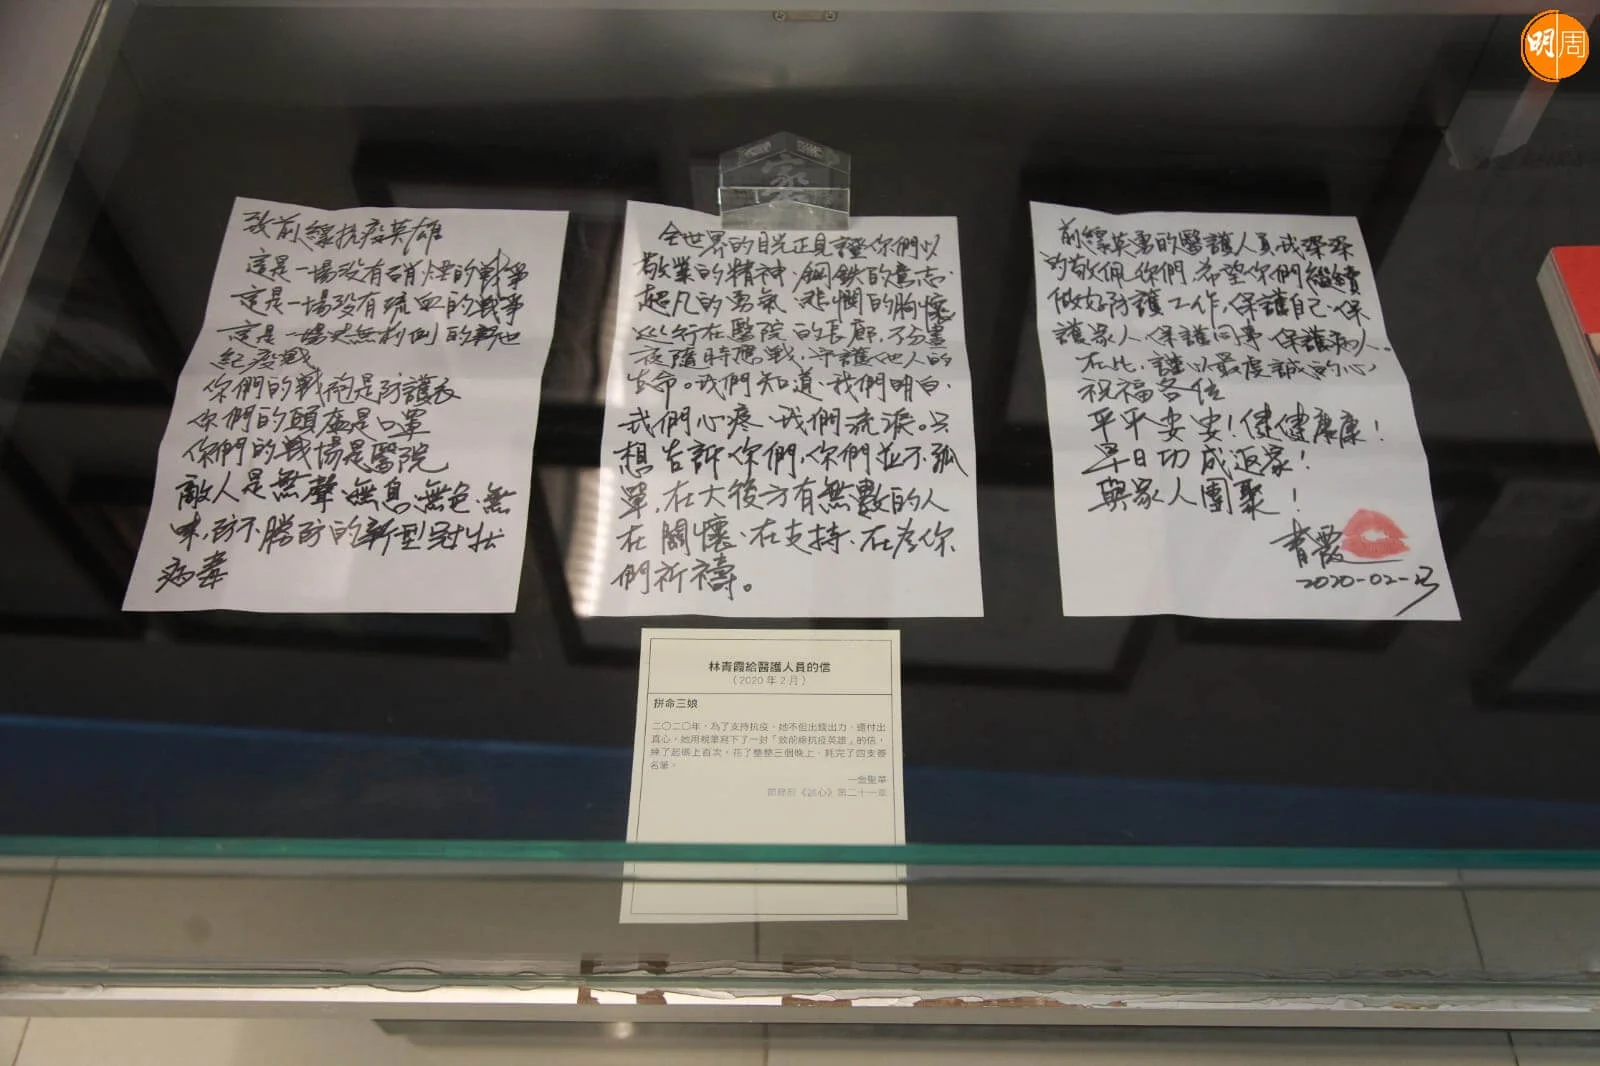 明周
致前線抗疫英雄
這是一場沒有硝煙的戰爭
這是一場沒有流血的戰爭
這是一場史無前例的新世
紀疫戰
你們的戰袍是防護衣
你們的頭盔是口罩
你們的戰場是醫院
敵人是無聲、無息、無色、無
味，防不勝防的新型冠狀
病毒
全世界的目光正見證你們以
敬業的精神、鋼鐵的意志、
超凡的勇氣、悲憫的胸懷
巡行在醫院的長廊，不分晝
夜隨時應戰，守護他人的
生命。我們知道、我們明白、
我們心疼、我們流淚。只
想告訴你們，你們並不孤
單，在大後方有無數的人
在關懷、在支持、在為你
們祈禱。
前線英勇的醫護人員我深深
的敬佩你們，希望你們繼續
做好防護工作，保護自己、保
護家人、保護同事、保護病人。
在此，謹以最虔誠的心，
祝福各位
平平安安！健健康康！
早日功成返家！
與家人團聚！
青霞
2020-02-
林青霞給醫護人員的信
（2020年2月）
拼命三娘
二〇二〇年，為了支持抗疫，她不但出錢出力，還付出
真心，她用親筆寫下了一封「致前線抗疫英雄」的信，
練了起碼上百次，花了整整三個晚上，耗完了四支簽
名筆。
—金聖華
節錄自《談心》第二十一章